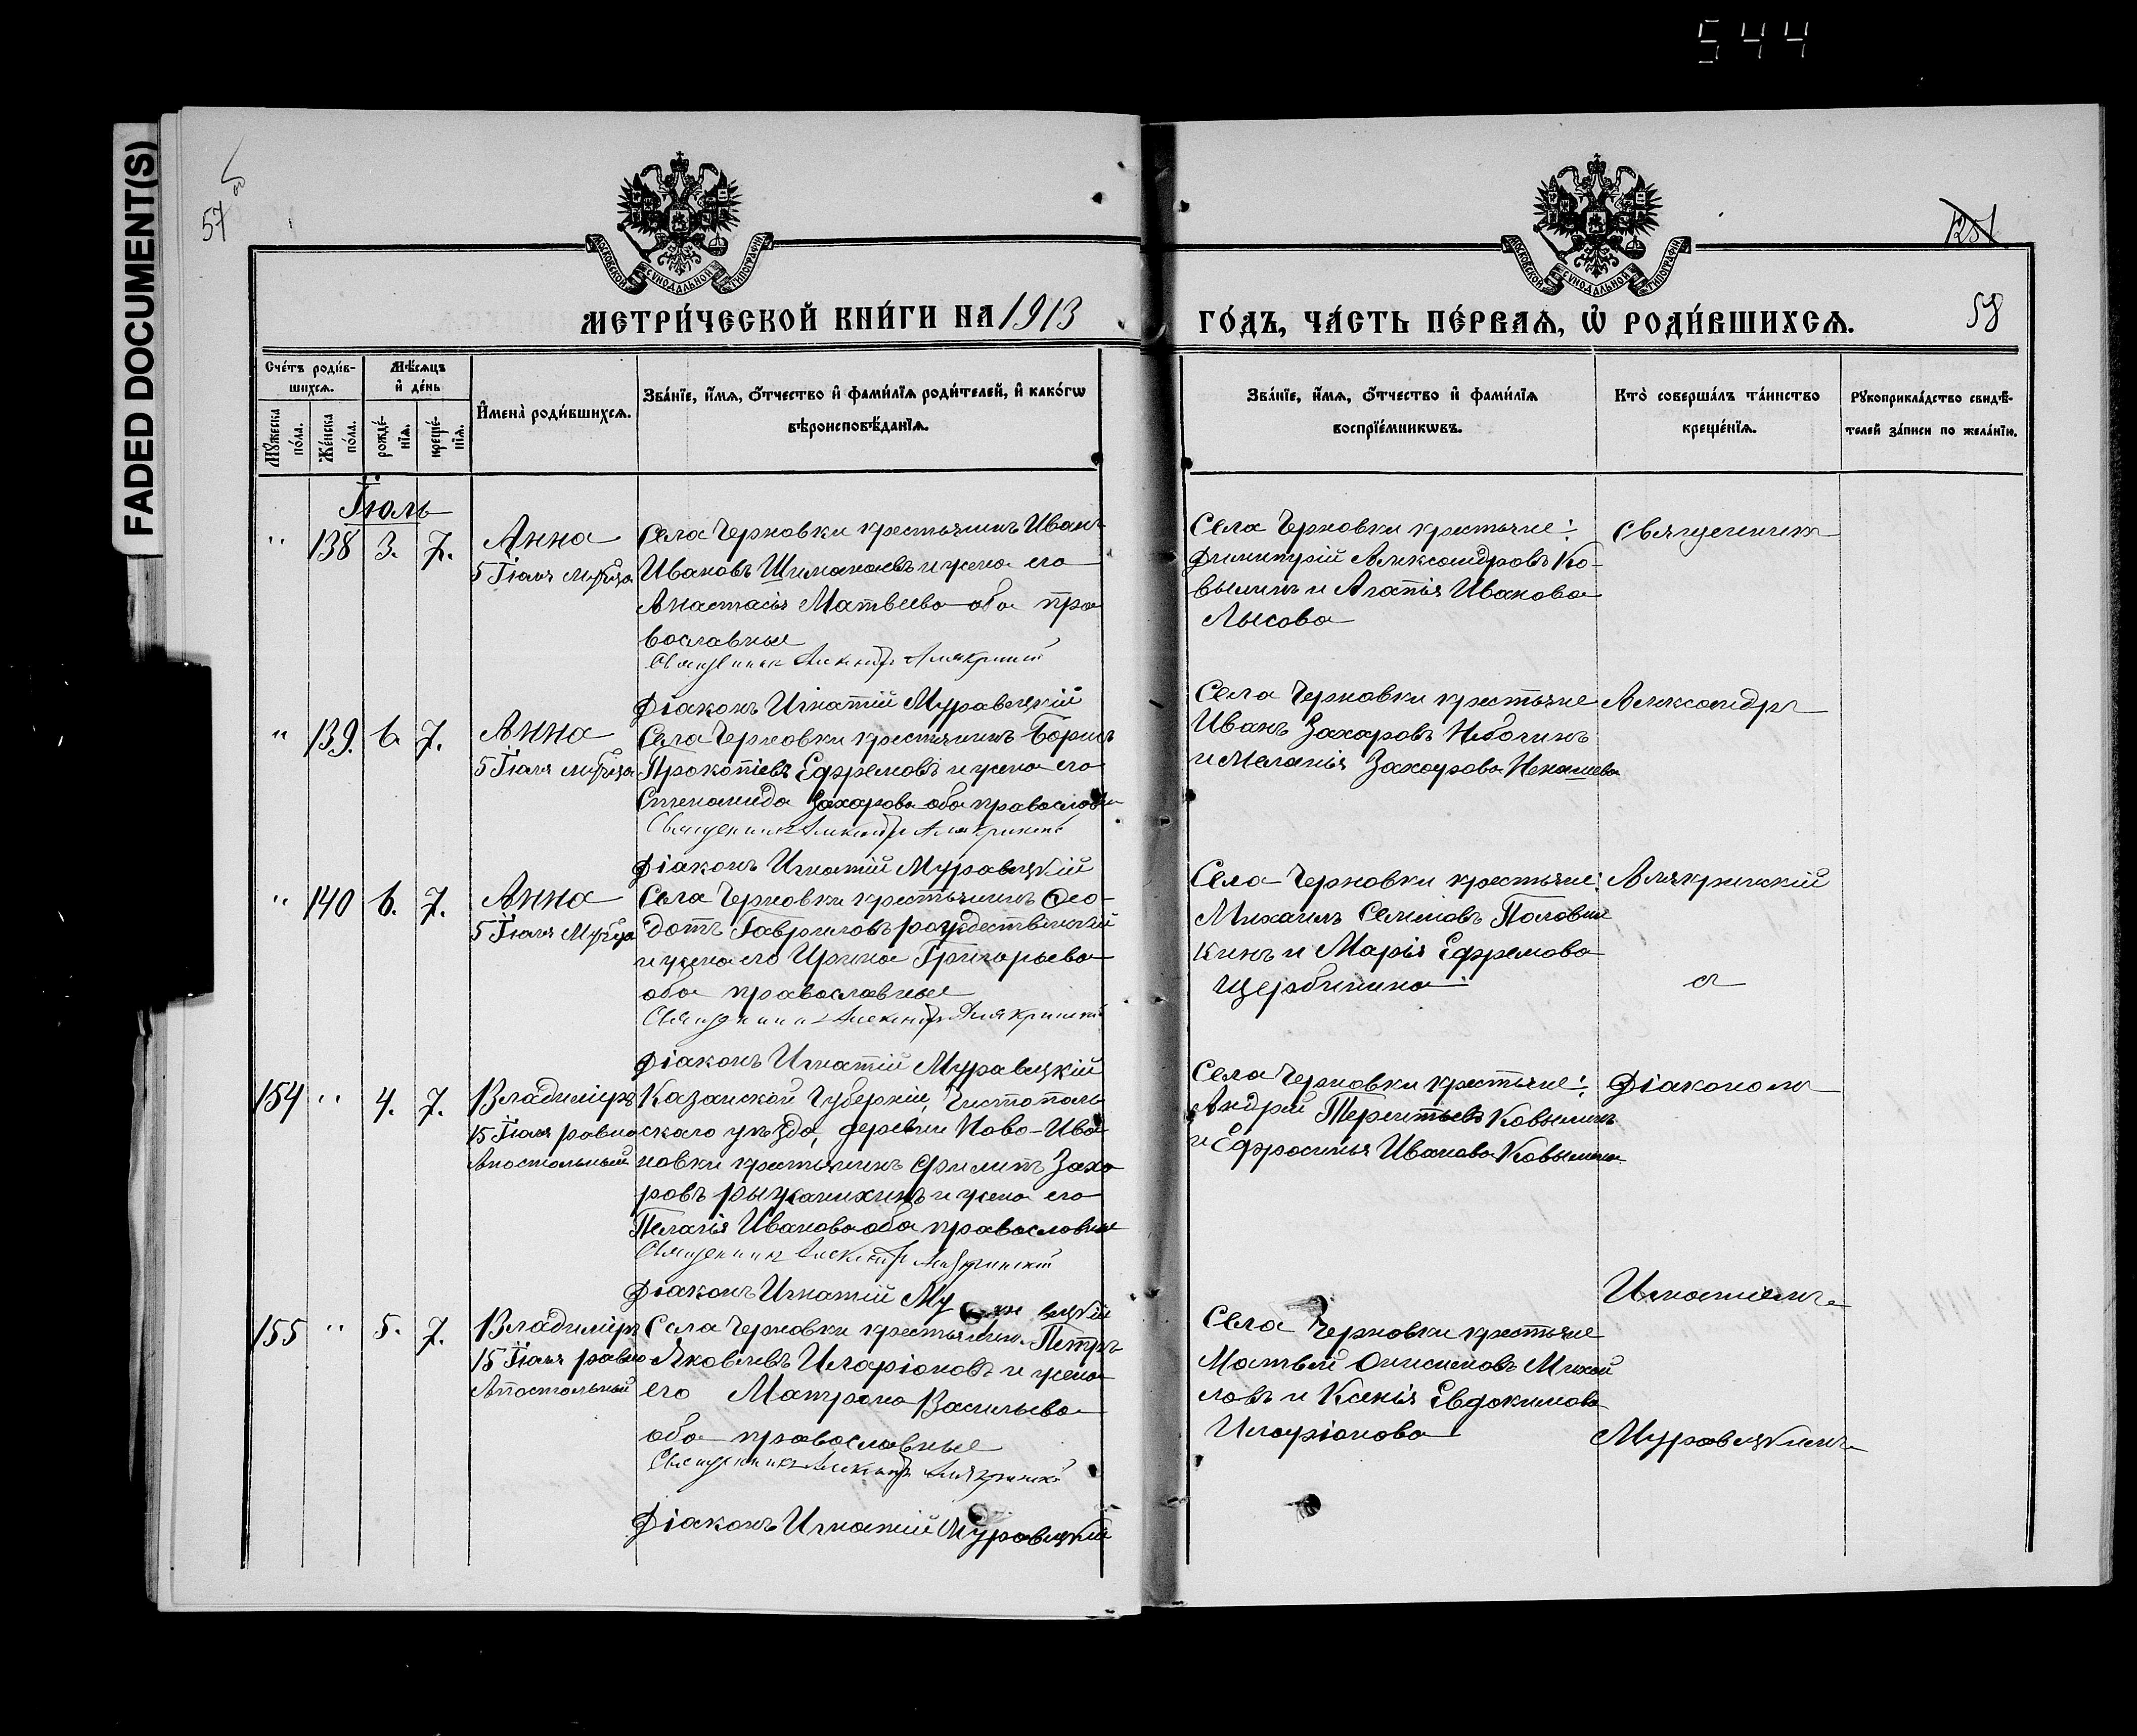 544
FADED DOCUMENT(S)
57 об
1251
58
МОСКОВСКОЙ СѴНОДАЛЬНОЙ ТИПОГРАФІИ
МОСКОВСКОЙ СѴНОДАЛЬНОЙ ТИПОГРАФІИ
МЕТРИ́ЧЕСКОЙ КНИ́ГИ НА 1913 ГО́ДЪ, ЧА́СТЬ ПЕ́РВАЯ, Ѡ҆ РОДИ́ВШИХСЯ.
Сче́тъ роди́в-
шихсѧ.
Мꙋ́жеска по́ла.
Же́нска по́ла.
Мѣ́сѧцъ
и҆ де́нь
рожде́-
нїѧ.
креще́-
нїѧ.
И҆мена̀ роди́вшихсѧ.
Зва́нїе, и҆́мѧ, ѻ҆́тчество и҆ фами́лїѧ роди́телей, и҆ како́гѡ
вѣроисповѣ́данїѧ.
Зва́нїе, и҆́мѧ, ѻ҆́тчество и҆ фами́лїѧ
воспрїе́мникѡвъ.
Кто̀ соверша́лъ та́инство
креще́нїѧ.
Рꙋкоприкла́дство свидѣ́-
телей за́писи по жела́нїю.
Іюль
" 138 3. 7.
Анна
5 Іюля
Села Черновки крестьянинъ Иванъ
Ивановъ Шиманаевъ и жена его
Анастасія Матвеева оба пра
вославные
Священникъ Александръ Алякринскій
Діаконъ Игнатій Муравецкій
Села Черновки крестьяне:
Димитрій Александровъ Ко-
вылинъ и Агапія Иванова
Лысова
Священникъ
" 139. 6. 7.
Анна
5 Іюля
Села Черновки крестьянинъ Борисъ
Прокопіевъ Ефремовъ и жена его
Степанида Захарова оба православн
Священникъ Александръ Алякринскій
Діаконъ Игнатій Муравецкій
Села Черновки крестьяне
Иванъ Захаровъ
и Меланія Захарова
Александръ
" 140 6. 7.
Анна
5 Іюля
Села Черновки крестьянинъ Ѳео-
дотъ Гавриловъ рождественскій
и жена его Ирина Григорьева
оба православные
Священникъ Александръ Алякринскій
Діаконъ Игнатій Муравецкій
Села Черновки крестьяне:
Михаилъ Семеновъ Половин
кинъ и Марія Ефремова
Щербинина
Алякринскій
съ
154 " 4. 7.
Владиміръ
15 Іюля равно
Апостольный
Казанской Губерніи, Чистополь
скаго уѣзда, деревни Ново-Ива
новки крестьянинъ Филипъ Заха
ровъ рыжанихинъ и жена его
Пелагія Иванова оба православные
Священникъ Александръ Алякринскій
Діаконъ Игнатій Муравецкій
Села Черновки крестьяне:
Андрей Терентьевъ Ковылинъ
и Ефросинья Иванова Ковылина
Діакономъ
Игнатіемъ
155 " 5. 7.
Владиміръ
15 Іюля равно
Апостольный
Села Черновки крестьянин. Петръ
Яковлевъ Иларіоновъ и жена
его Матрона Васильева
оба православные
Священникъ Александръ Алякринскій
Діаконъ Игнатій Муравецкій
Села Черновки крестьяне
Матвей Онисимовъ Михай
ловъ и Ксенія Евдокимова
Иларіонова
Муравецкимъ